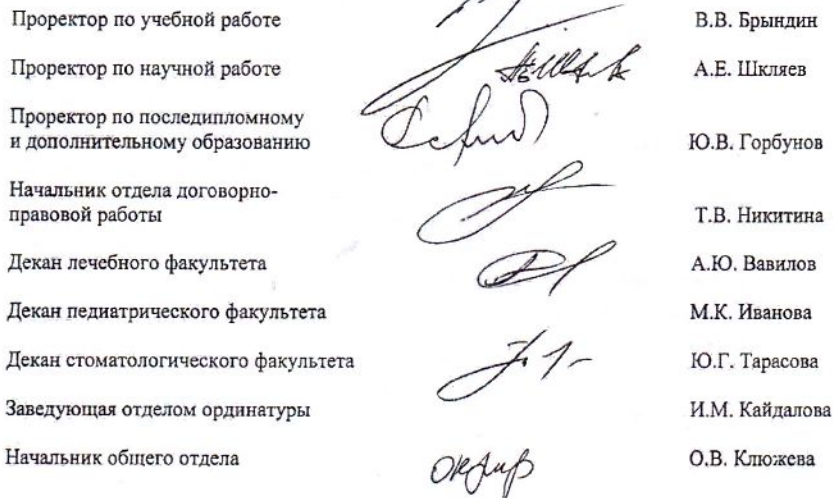 Проректор по учебной работе В.В. Брындин
Проректор по научной работе А.Е. Шкляев
Проректор по последипломному
и дополнительному образованию Ю.В. Горбунов
Начальник отдела договорно-
правовой работы Т.В. Никитина
Декан лечебного факультета А.Ю. Вавилов
Декан педиатрического факультета М.К. Иванова
Декан стоматологического факультета Ю.Г. Тарасова
Заведующая отделом ординатуры И.М. Кайдалова
Начальник общего отдела О.В. Клюжева